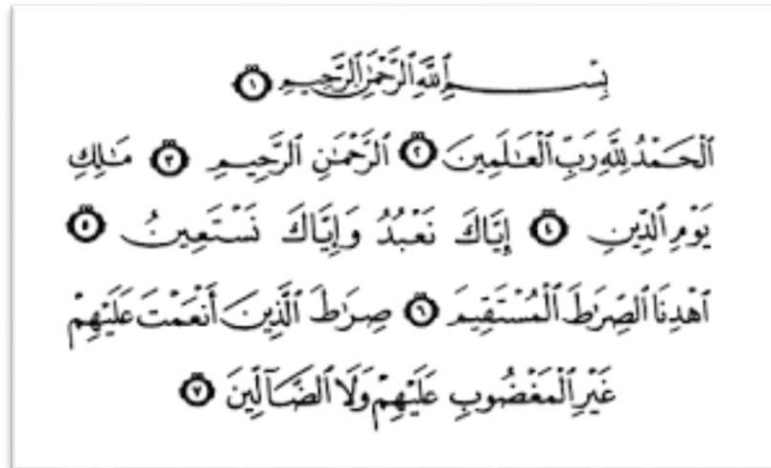 بِسْمِ ٱللَّهِ ٱلرَّحْمَٰنِ ٱلرَّحِيمِ ١
ٱلْحَمْدُ لِلَّهِ رَبِّ ٱلْعَٰلَمِينَ ٢ ٱلرَّحْمَٰنِ ٱلرَّحِيمِ ٣ مَٰلِكِ
يَوْمِ ٱلدِّينِ ٤ إِيَّاكَ نَعْبُدُ وَإِيَّاكَ نَسْتَعِينُ ٥
ٱهْدِنَا ٱلصِّرَٰطَ ٱلْمُسْتَقِيمَ ٦ صِرَٰطَ ٱلَّذِينَ أَنْعَمْتَ عَلَيْهِمْ
غَيْرِ ٱلْمَغْضُوبِ عَلَيْهِمْ وَلَا ٱلضَّآلِّينَ ٧